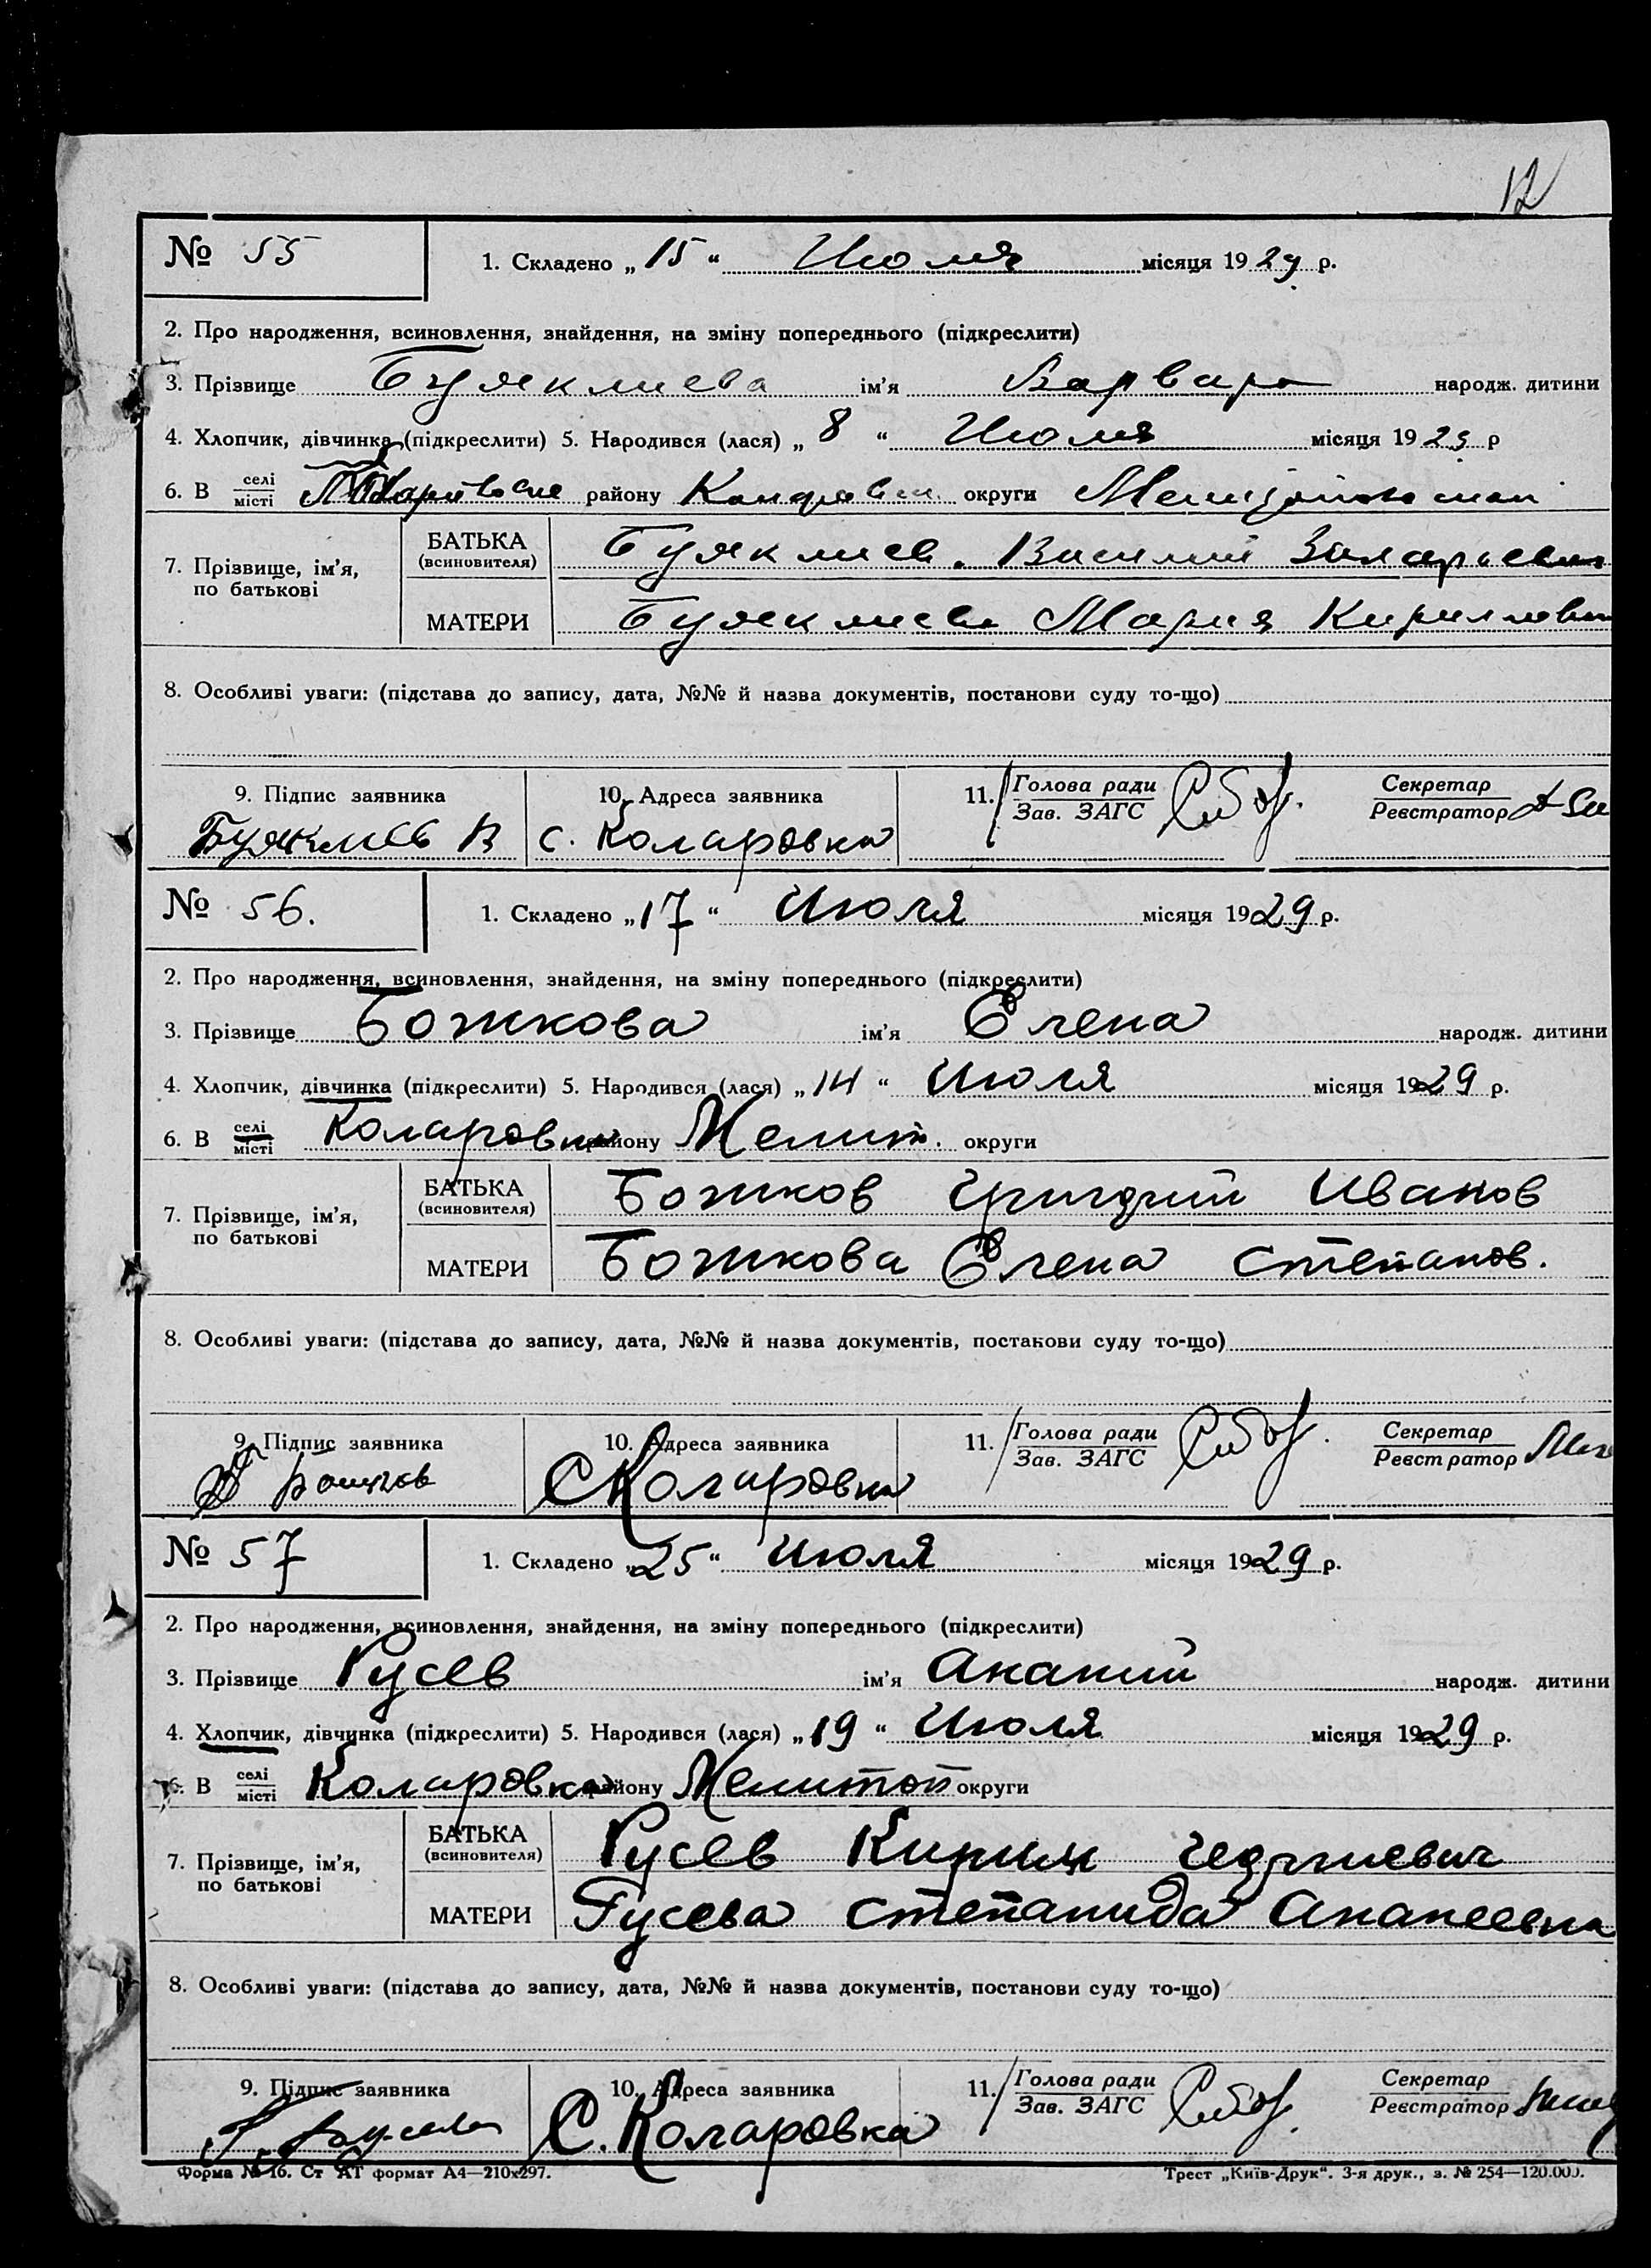 12
№ 55 1. Складено „ 15 “ Июля місяця 1929 р.
2. Про народження, всиновлення, знайдення, на зміну попереднього (підкреслити)
3. Прізвище Буюклиева ім’я Варвара народж. дитини
4. Хлопчик, дівчинка (підкреслити) 5. Народився (лася) „ 8 “ Июля місяця 1929 р
6. В селі місті району округи
7. Прізвище, ім’я, по батькові БАТЬКА (всиновителя) Буюклиев Василий
МАТЕРИ Буюклиева Мария
8. Особливі уваги: (підстава до запису, дата, №№ й назва документів, постанови суду то-що)
9. Підпис заявника 10. Адреса заявника 11. Голова ради Зав. ЗАГС Секретар Реєстратор
Буюклиев В с. Коларовка
№ 56. 1. Складено „ 17 “ Июля місяця 1929 р.
2. Про народження, всиновлення, знайдення, на зміну попереднього (підкреслити)
3. Прізвище Божкова ім’я Елена народж. дитини
4. Хлопчик, дівчинка (підкреслити) 5. Народився (лася) „ 14 “ Июля місяця 1929 р.
6. В селі місті Коларовка району Мелит. округи
7. Прізвище, ім’я, по батькові БАТЬКА (всиновителя) Божков Григорий Иванов
МАТЕРИ Божкова Елена Степанов.
8. Особливі уваги: (підстава до запису, дата, №№ й назва документів, постанови суду то-що)
9. Підпис заявника 10. Адреса заявника 11. Голова ради Зав. ЗАГС Секретар Реєстратор
Божков С Коларовка
№ 57 1. Складено „ 25 “ Июля місяця 1929 р.
2. Про народження, всиновлення, знайдення, на зміну попереднього (підкреслити)
3. Прізвище Гусев ім’я Акакий народж. дитини
4. Хлопчик, дівчинка (підкреслити) 5. Народився (лася) „ 19 “ Июля місяця 1929 р.
6. В селі місті Коларовка району Мелитоп округи
7. Прізвище, ім’я, по батькові БАТЬКА (всиновителя) Гусев Кирил Георгиевич
МАТЕРИ Гусева Степанида Акакеевна
8. Особливі уваги: (підстава до запису, дата, №№ й назва документів, постанови суду то-що)
9. Підпис заявника 10. Адреса заявника 11. Голова ради Зав. ЗАГС Секретар Реєстратор
С. Коларовка
Форма № 16. Ст АТ формат А4—210х297. Трест „Київ-Друк“. 3-я друк., з. № 254—120.000.